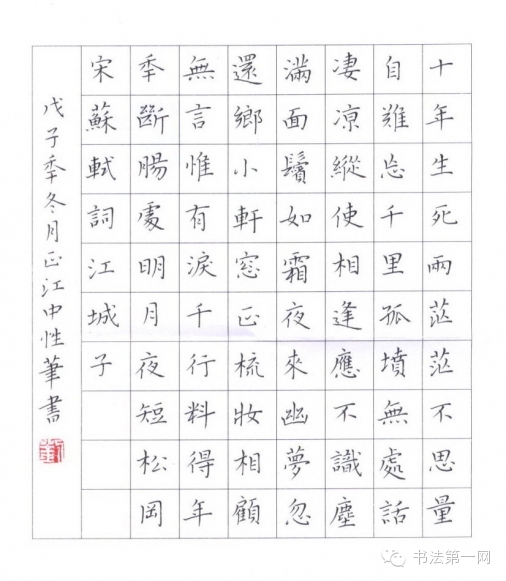 十年生死兩茫茫不思量
自難忘千里孤墳無處話
凄凉縱使相逢應不識塵
滿面鬢如霜夜來幽夢忽
還鄉小軒窓正梳妝相顧
無言惟有淚千行料得年
秊斷腸處明月夜短松岡
宋蘇軾詞江城子
戊子秊冬月正江中性筆書
书法第一网